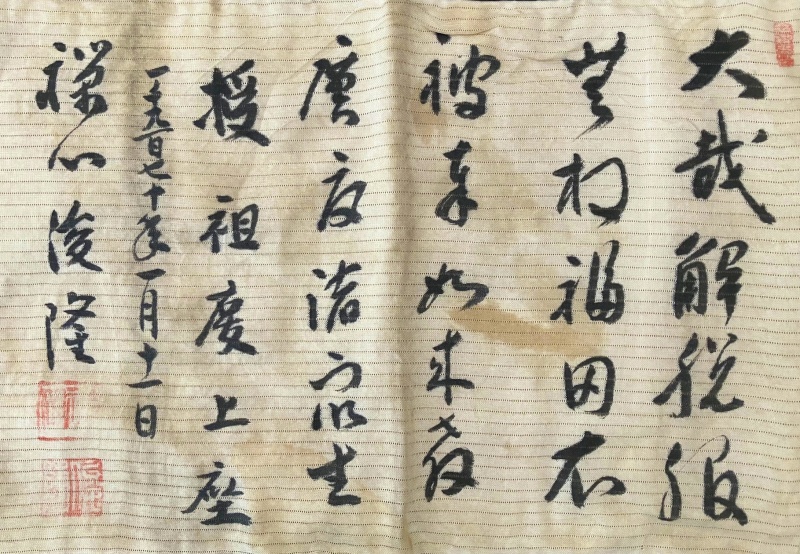 大哉解脱服
無相福田衣
被奉如来教
廣度諸衆生
授祖慶上座
一千九百七十年一月十一日
禅心俊隆